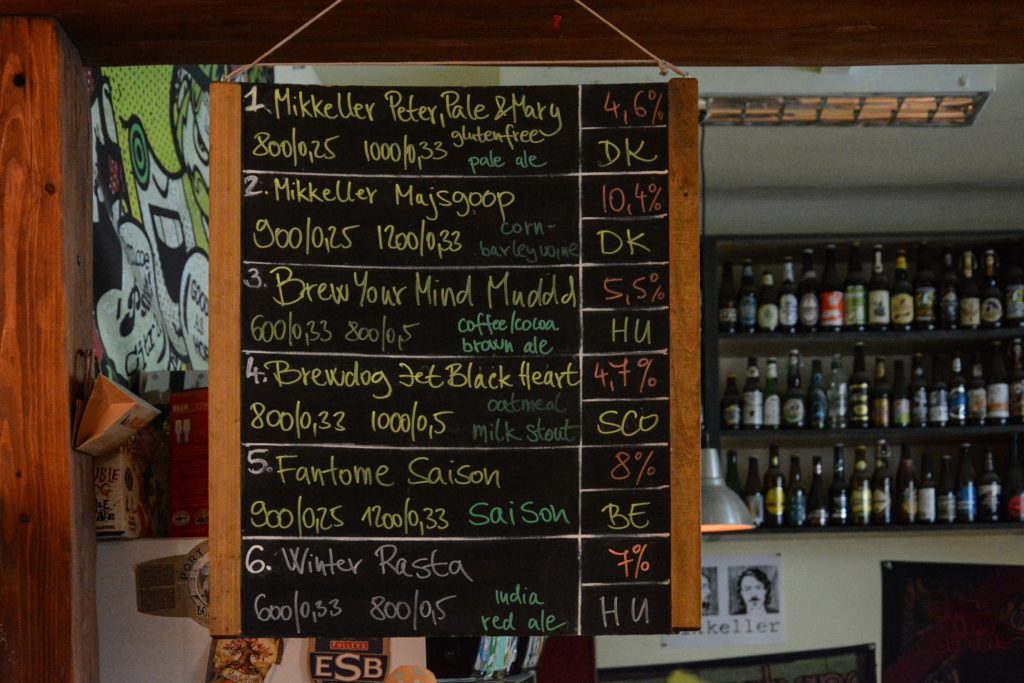 1. Mikkeller Peter, Pale & Mary 4,6%
glutenfree
800/0,25 1000/0,33 pale ale DK
2. Mikkeller Majsgoop 10,4%
900/0,25 1200/0,33 corn-
barleywine DK
3. Brew Your Mind Muddd 5,5%
600/0,33 800/0,5 coffee/cocoa
brown ale HU
4. Brewdog Jet Black Heart 4,7%
800/0,33 1000/0,5 oatmeal
milk stout SCO
5. Fantome Saison 8%
900/0,25 1200/0,33 Saison BE
6. Winter Rasta 7%
600/0,33 800/0,5 india
red ale HU
FULLER'S
ESB